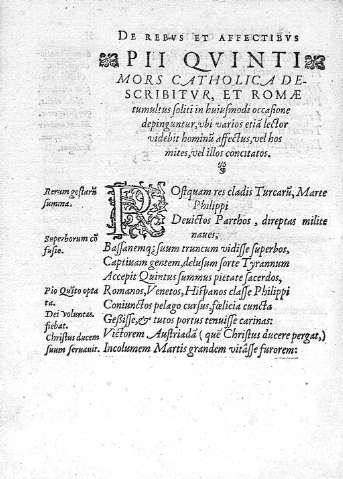 DE REBVS ET AFFECTIBVS
PII QVINTI
MORS CATHOLICA DE-
SCRIBITVR, ET ROMÆ
tumultus soliti in huiusmodi occasione
depinguntur, vbi varios etiā lector
videbit hominū affectus, vel hos
mites, vel illos concitatos.
Rerum gestarū
summa.
POstquam res cladis Turcarū, Marte
Philippi
Deuictos Parthos, direptas milite
naues;
Superborum cō
fusie.
Bassanemq; suum truncum vidisse superbos,
Captiuam gentem, delusum forte Tyrannum
Accepit Quintus summus pietate sacerdos,
Pio Quīto opta
ta.
Romanos, Venetos, Hispanos classe Philippi
Coniunctos pelago cursus, fœlicia cuncta
Dei voluntas.
fiebat.
Gessisse, & tutos portus tenuisse carinas:
Christus ducem
suum seruauit.
Victorem Austriadā (quē Christus ducere pergat,)
Incolumem Martis grandem vitâsse furorem: